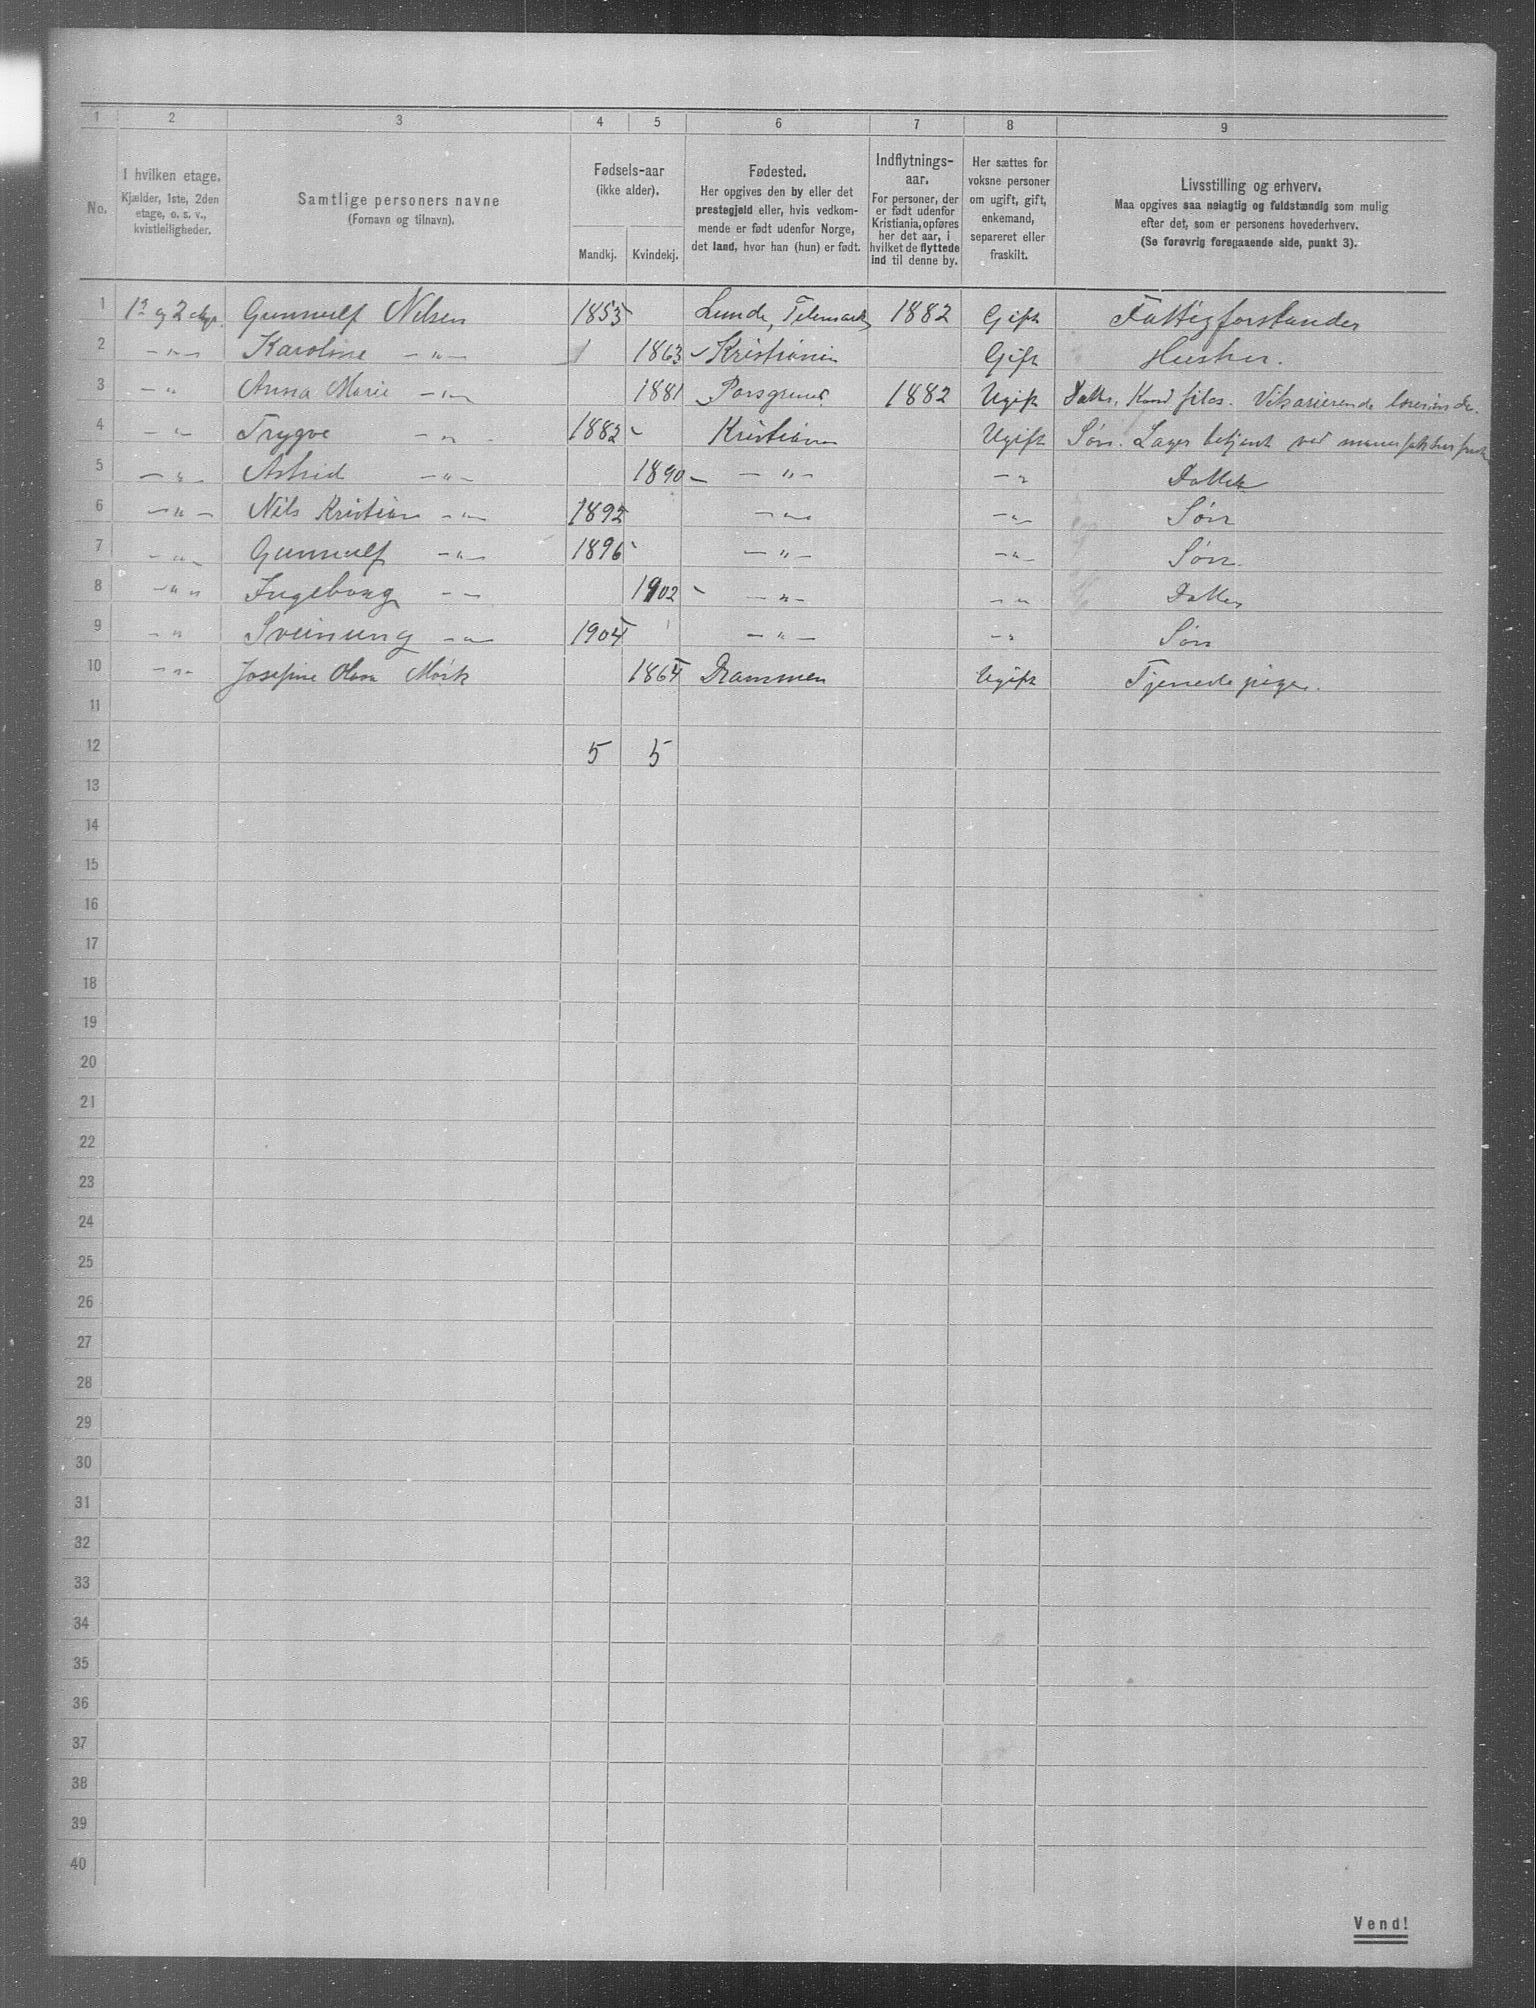 1 2 3 4 5 6 7 8 9
No.
I hvilken etage.
Kjælder, 1ste, 2den
etage, o. s. v.,
kvistleiligheder.
Samtlige personers navne
(Fornavn og tilnavn).
Fødsels-aar
(ikke alder).
Mandkj. Kvindekj.
Fødested.
Her opgives den by eller det
prestegjeld eller, hvis vedkom-
mende er født udenfor Norge,
det land, hvor han (hun) er født.
Indflytnings-
aar.
For personer, der
er født udenfor
Kristiania, opføres
her det aar, i
hvilket de flyttede
ind til denne by.
Her sættes for
voksne personer
om ugift, gift,
enkemand,
separeret eller
fraskilt.
Livsstilling og erhverv.
Maa opgives saa nøiagtig og fuldstændig som mulig
efter det, som er personens hovederhverv.
(Se forøvrig foregaaende side, punkt 3).
1 1ste og 2 etage. Gunnulf Nilsen 1853 Lunde, Telemarken 1882 Gift Fattigforstander
2 — " — Karoline — " — 1 1863 Kristiania Gift Hustru.
3 — " Anna Marie — " — 1881 Porsgrund 1882 Ugift Datter, Kand filos. Vikarierende lærerinde.
4 — " — Trygve — " — 1882 Kristiania Ugift Søn. Lager betjent ved
5 — " — Astrid — " — 1890 — " — — " Datter
6 — " — Nils Kristian — " — 1892 — " — — " — Søn
7 — " — Gunnulf — " — 1896 — " — — " — Søn.
8 — " — Ingeborg — " — 1902 — " — — " — Datter
9 — " Sveinung — " — 1904 — " — — " Søn
10 — " — Josefine Olava Mørk 1864 Drammen Ugift Tjenestepige.
11
12 5 5
13
14
15
16
17
18
19
20
21
22
23
24
25
26
27
28
29
30
31
32
33
34
35
36
37
38
39
40
Vend!